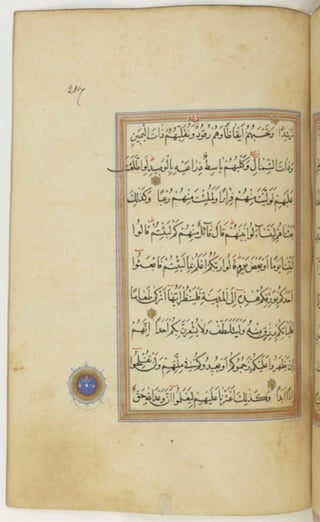 217
مُرْشِدًا وَتَحْسَبُهُمْ أَيْقَاظًا وَهُمْ رُقُودٌ وَنُقَلِّبُهُمْ ذَاتَ الْيَمِينِ
وَذَاتَ الشِّمَالِ وَكَلْبُهُمْ بَاسِطٌ ذِرَاعَيْهِ بِالْوَصِيدِ لَوِ اطَّلَعْتَ
عَلَيْهِمْ لَوَلَّيْتَ مِنْهُمْ فِرَارًا وَلَمُلِئْتَ مِنْهُمْ رُعْبًا وَكَذَلِكَ
بَعَثْنَاهُمْ لِيَتَسَاءَلُوا بَيْنَهُمْ قَالَ قَائِلٌ مِنْهُمْ كَمْ لَبِثْتُمْ قَالُوا
لَبِثْنَا يَوْمًا أَوْ بَعْضَ يَوْمٍ قَالُوا رَبُّكُمْ أَعْلَمُ بِمَا لَبِثْتُمْ فَابْعَثُوا
أَحَدَكُمْ بِوَرِقِكُمْ هَذِهِ إِلَى الْمَدِينَةِ فَلْيَنْظُرْ أَيُّهَا أَزْكَى طَعَامًا
فَلْيَأْتِكُمْ بِرِزْقٍ مِنْهُ وَلْيَتَلَطَّفْ وَلَا يُشْعِرَنَّ بِكُمْ أَحَدًا إِنَّهُمْ
إِنْ يَظْهَرُوا عَلَيْكُمْ يَرْجُمُوكُمْ أَوْ يُعِيدُوكُمْ فِي مِلَّتِهِمْ وَلَنْ تُفْلِحُوا
إِذًا أَبَدًا وَكَذَلِكَ أَعْثَرْنَا عَلَيْهِمْ لِيَعْلَمُوا أَنَّ وَعْدَ اللَّهِ حَقٌّ